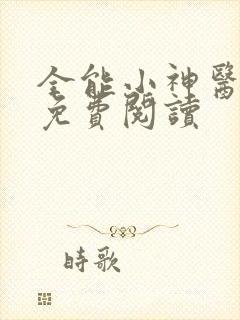 全能小神醫
免費閱讀
時歌